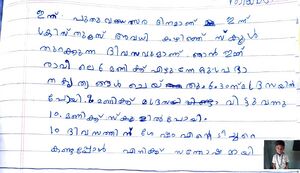 ഇന്ന് പുതുവത്സര ദിനമാണ് ഇന്ന്
ക്രിസ്മസ് അവധി കഴിഞ്ഞ് സ്കൂൾ
തുറക്കുന്ന ദിവസവുമാണ്. ഞാൻ ഇന്ന്
രാവിലെ 6 മണിക്ക് എഴുന്നേറ്റു പ്രഭാ
ത കൃത്യങ്ങൾ ചെയ്തു 6.30ന് മദ്രസയിൽ
പോയി. മണിക്ക് മദ്രസ വിട്ടു വന്നു
10. മണിക്ക് സ്കൂളിൽ പോയി.
10 ദിവസത്തിന് ശേഷം എന്റെ ടീച്ചറെ
കണ്ടപ്പോൾ എനിക്ക് സന്തോഷമായി